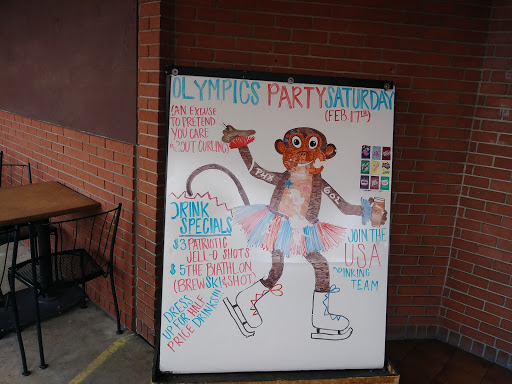 OLYMPICS PARTY SATURDAY
(FEB. 17th)
(AN EXCUSE
TO PRETEND
YOU CARE
ABOUT CURLING)
DRINK
SPECIALS
$3 PATRIOTIC
JELL-O SHOTS
$5 THE BIATHLON
(BREWSKI & SHOT)
DRESS
UP FOR HALF
PRICE DRINKS!!!
JOIN THE
USA
DRINKING
TEAM